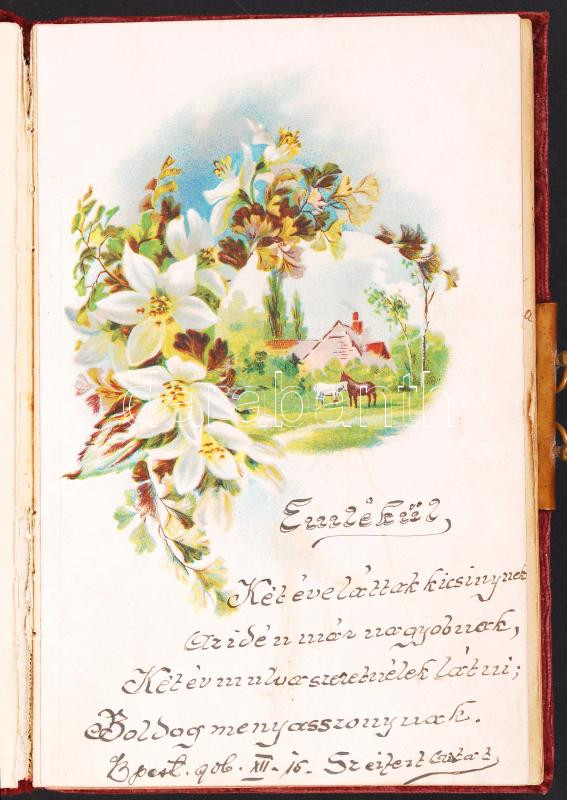 Emlékül
Két éve láttak kicsinynek
az idén már nagyobnak,
Két év mulva szeretnélek látni;
Boldog menyasszonynak.
Bpest. 906. XII. 15. Szeifert
darabanth